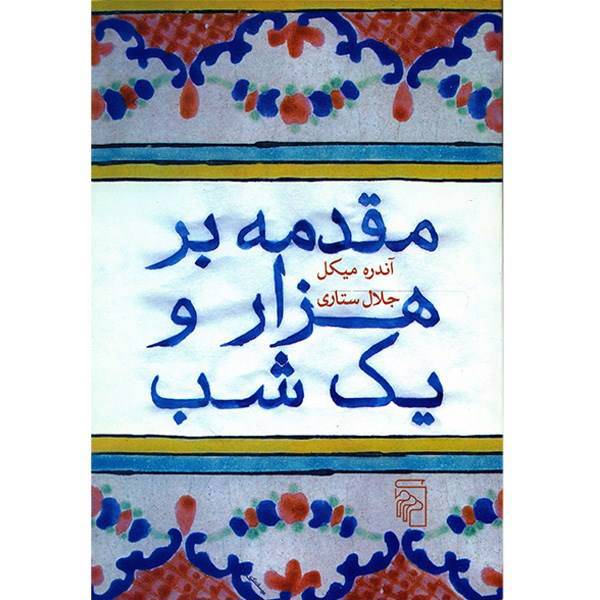 مقدمه بر
آندره میکل
هزار و
جلال ستاری
یک شب